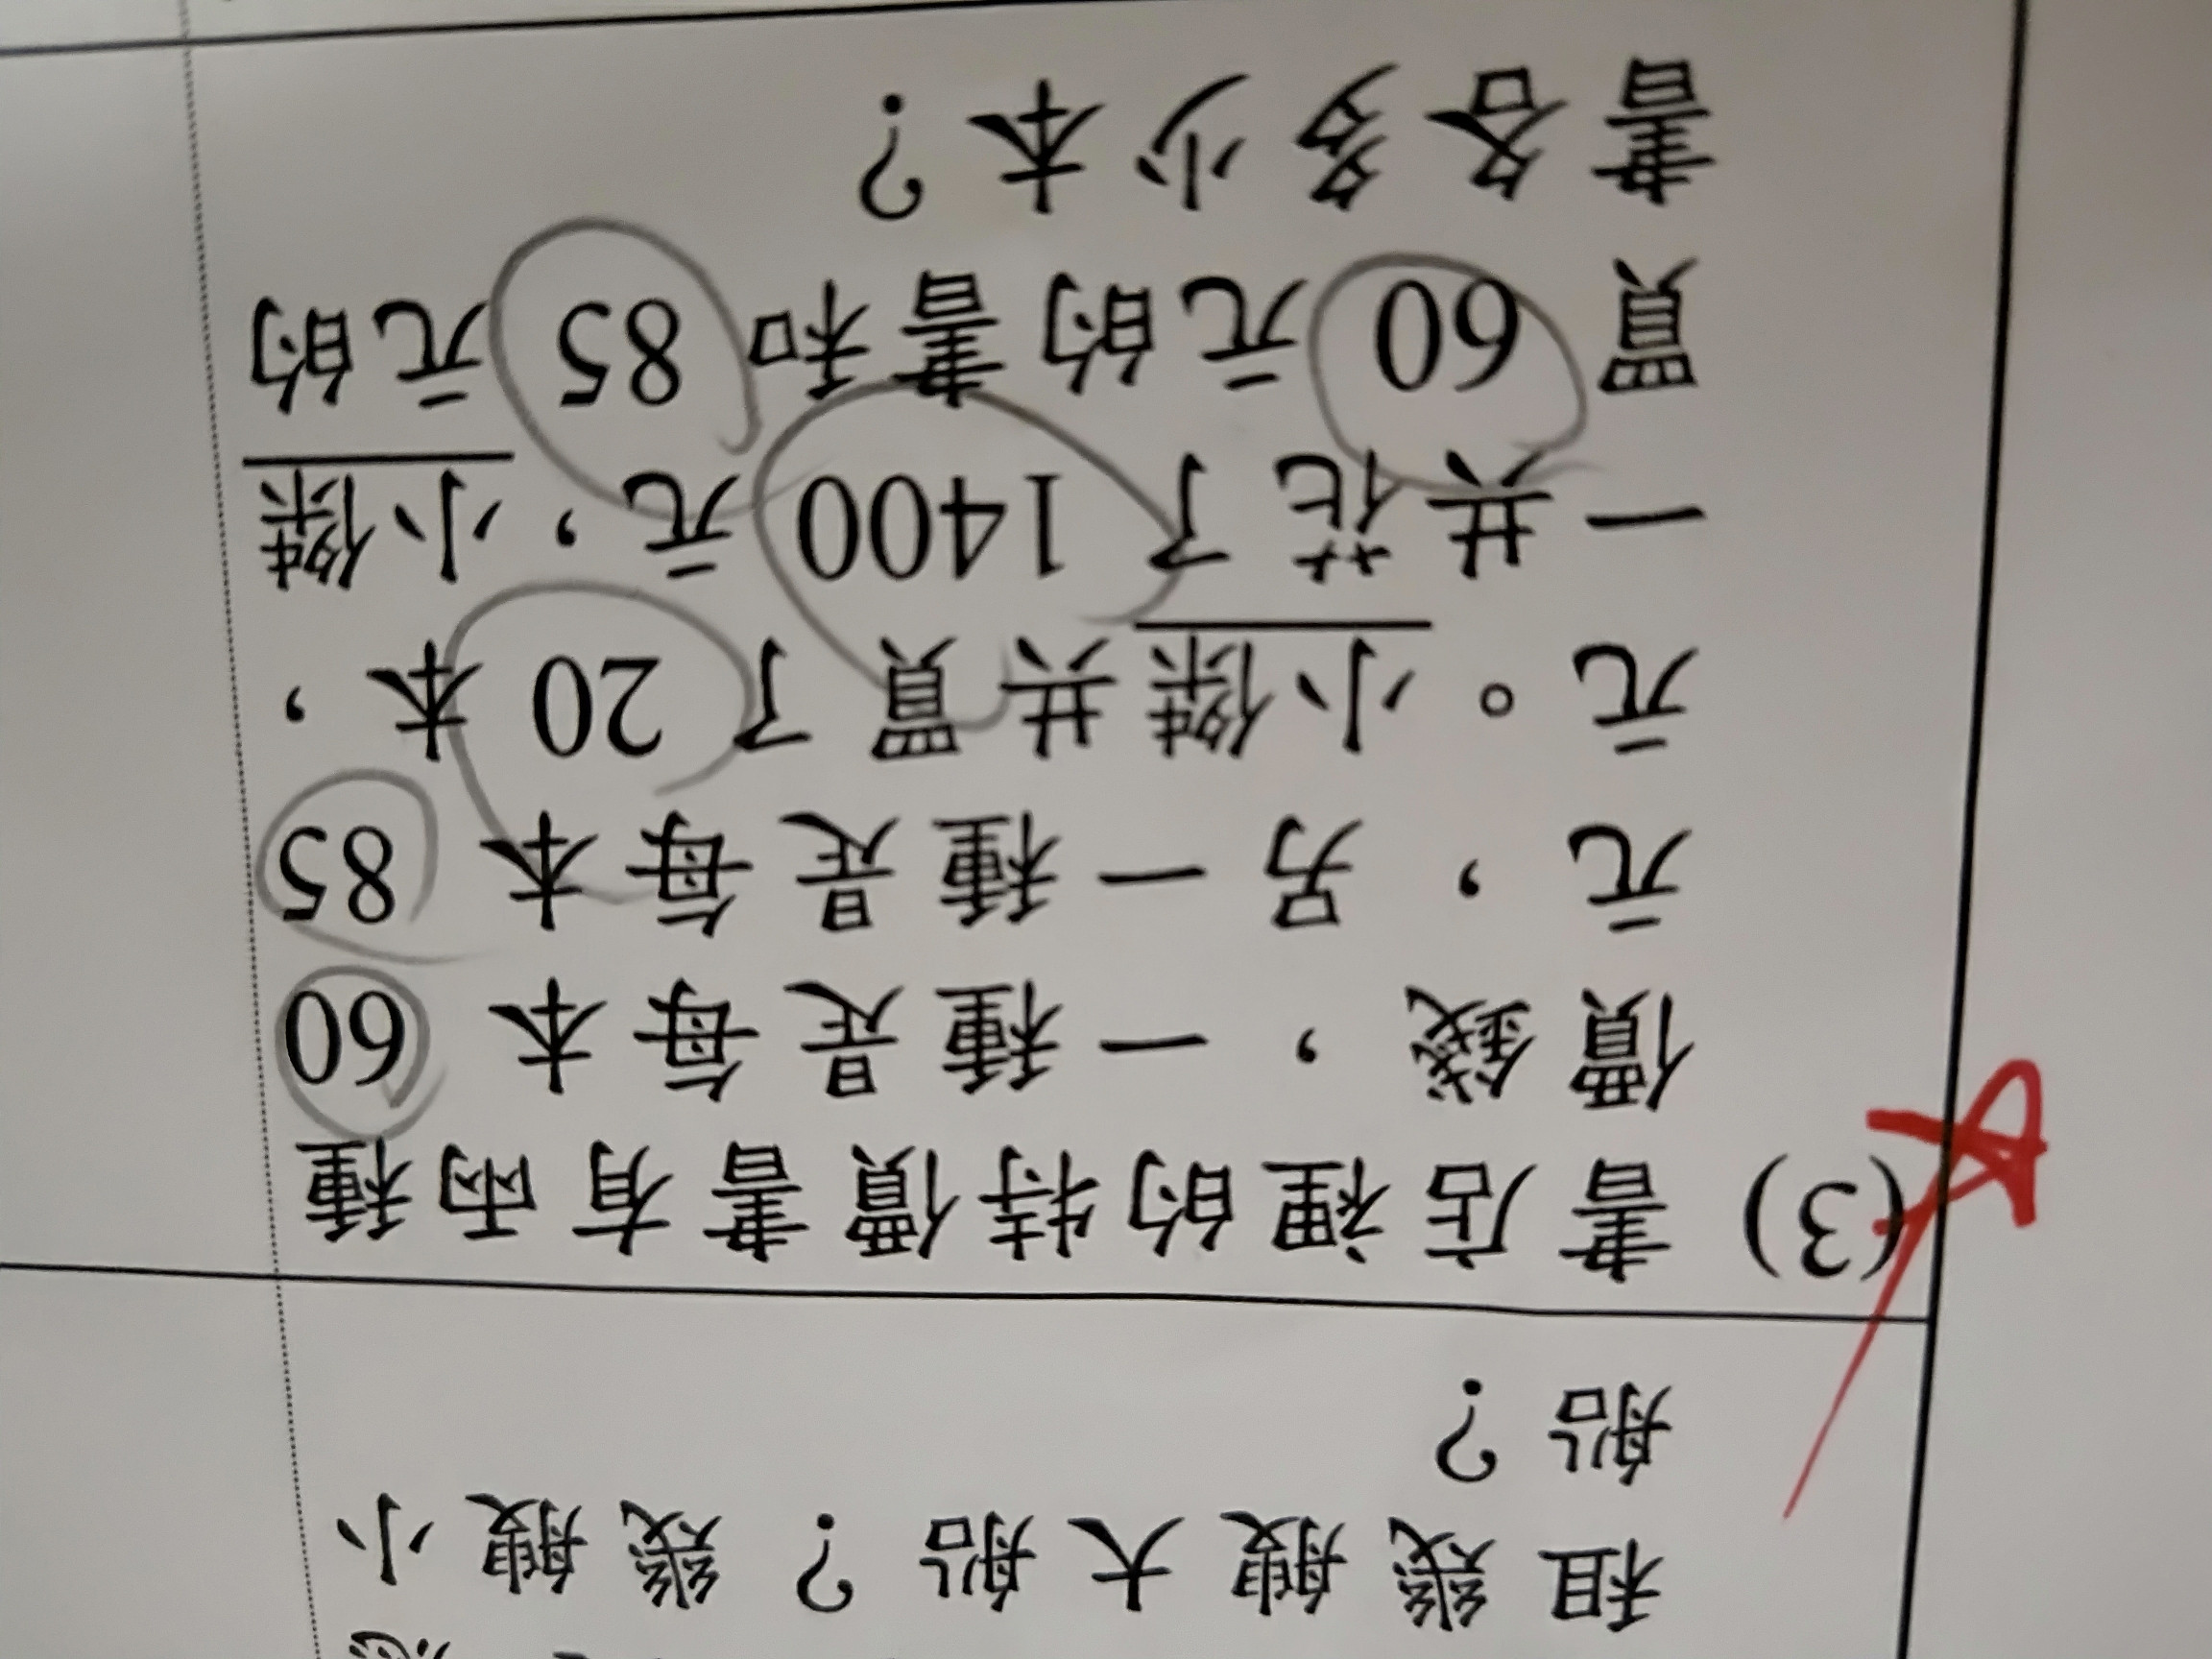 租幾艘大船？幾艘小
船？
(3) 書店裡的特價書有兩種
價錢，一種是每本 60
元，另一種是每本 85
元。小傑共買了 20 本，
一共花了 1400 元，小傑
買 60 元的書和 85 元的
書各多少本？